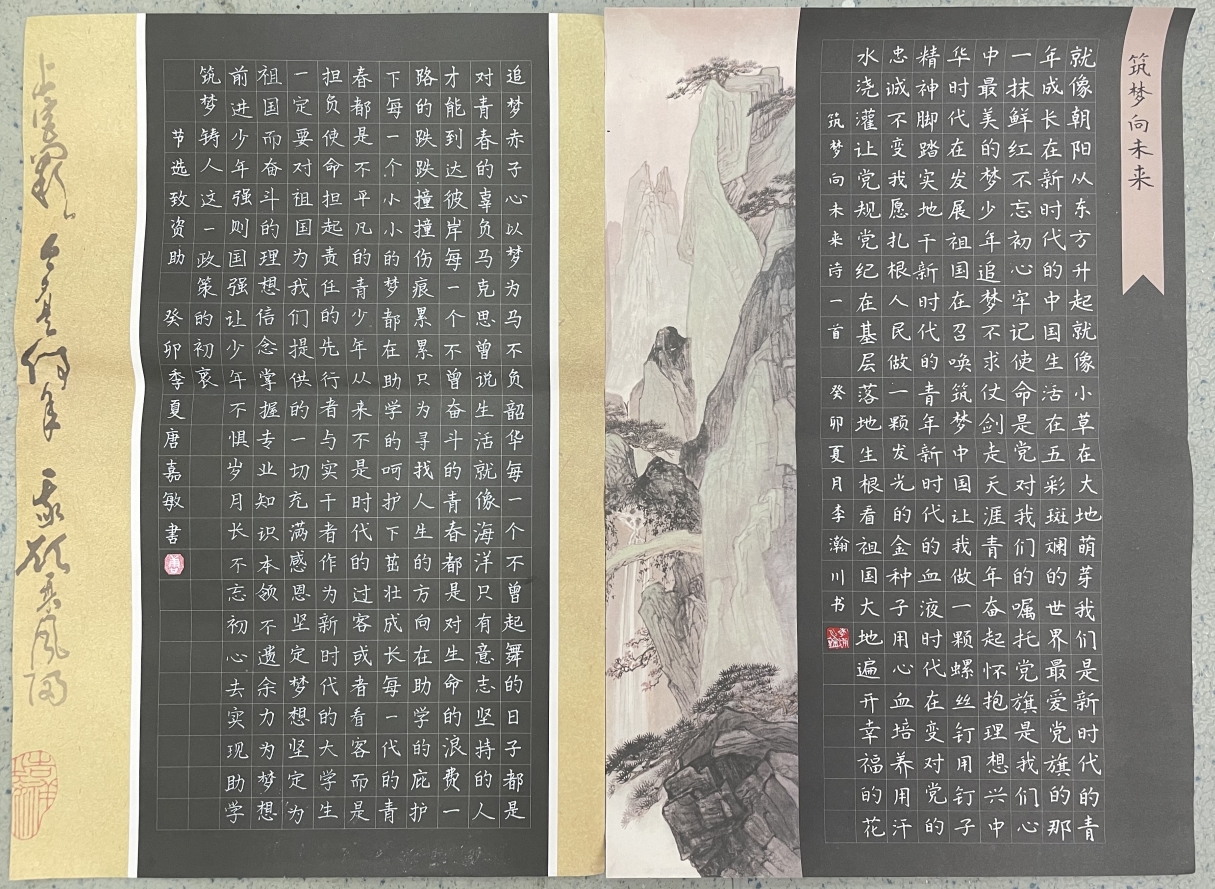 筑梦向未来
就像朝阳从东方升起就像小草在大地萌芽我们是新时代的青
年成长在新时代的中国生活在五彩斑斓的世界最爱党旗的那
一抹鲜红不忘初心牢记使命是党对我们的嘱托党旗是我们心
中最美的梦少年追梦不求仗剑走天涯青年奋起怀抱理想兴中
华时代在发展祖国在召唤筑梦中国让我做一颗螺丝钉用钉子
精神脚踏实地干新时代的青年新时代的血液时代在变对党的
忠诚不变我愿扎根人民做一颗发光的金种子用心血培养用汗
水浇灌让党规党纪在基层落地生根看祖国大地遍开幸福的花
筑梦向未来诗一首 癸卯夏月李瀚川书
追梦赤子心以梦为马不负韶华每一个不曾起舞的日子都是
对青春的辜负马克思曾说生活就像海洋只有意志坚持的人
才能到达彼岸每一个不曾奋斗的青春都是对生命的浪费一
路的跌跌撞撞伤痕累累只为寻找人生的方向在助学的庇护
下每一个小小的梦都在助学的呵护下茁壮成长每一代的青
春都是不平凡的青少年从来不是时代的过客或者看客而是
担负使命担起责任的先行者与实干者作为新时代的大学生
一定要对祖国为我们提供的一切充满感恩坚定梦想坚定为
祖国而奋斗的理想信念掌握专业知识本领不遗余力为梦想
前进少年强则国强让少年不惧岁月长不忘初心去实现助学
筑梦铸人这一政策的初衷
节选致资助 癸卯季夏唐嘉敏书